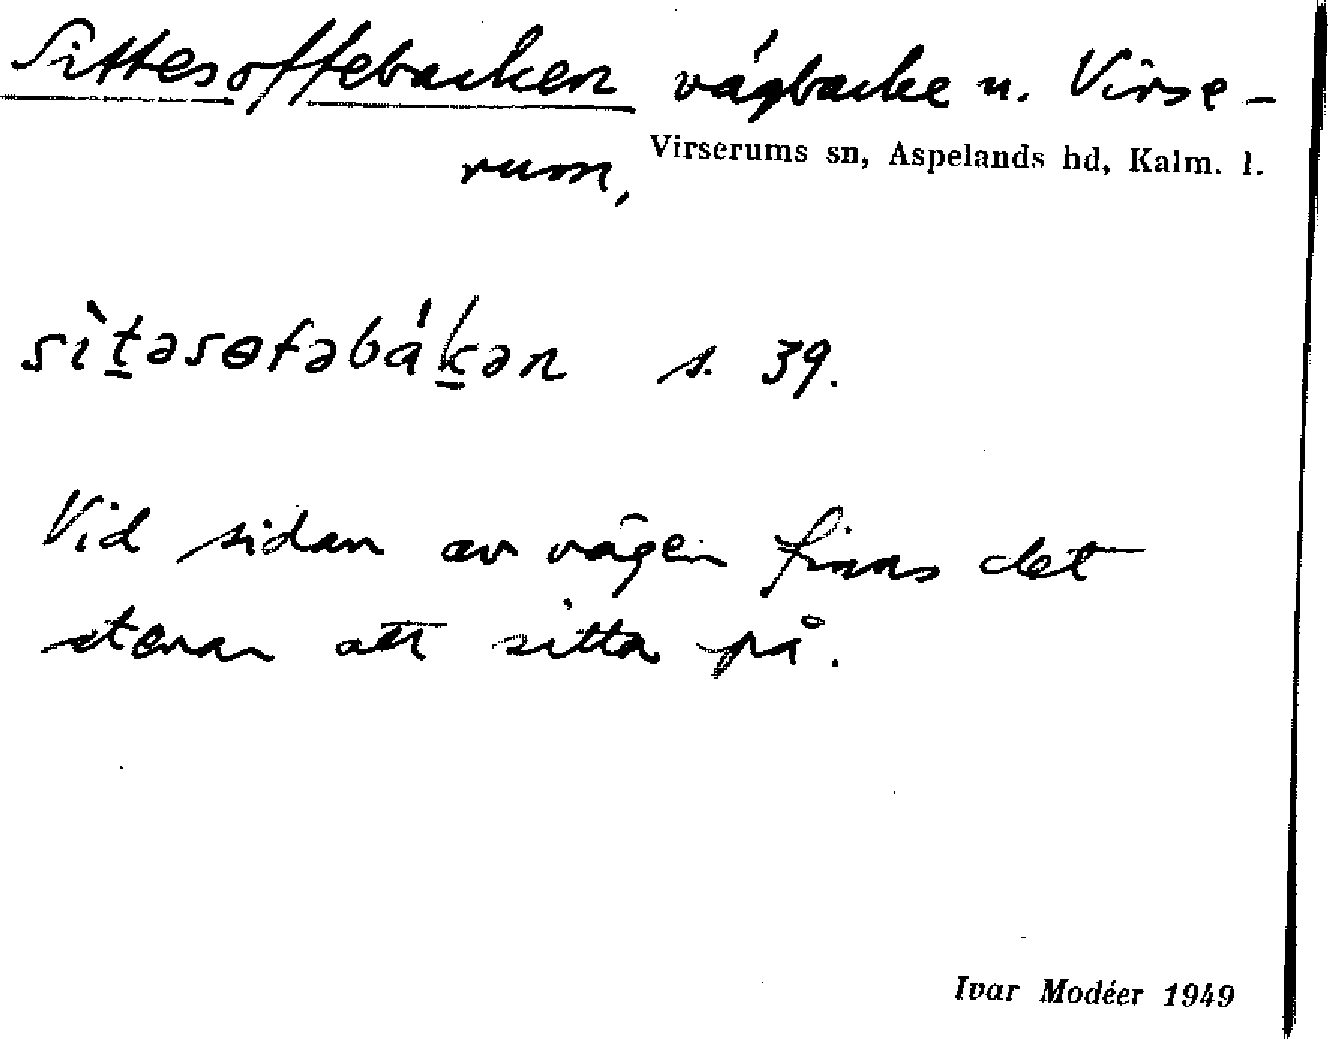 Sittesoffebacken vägbacke n. Virse-
rum, Virserums sn, Aspelands hd, Kalm. l.
sìt̲əsɵfəbák̲ən s. 39.
Vid sidan av vägen finns det
stenar att sitta på.
Ivar Modéer 1949